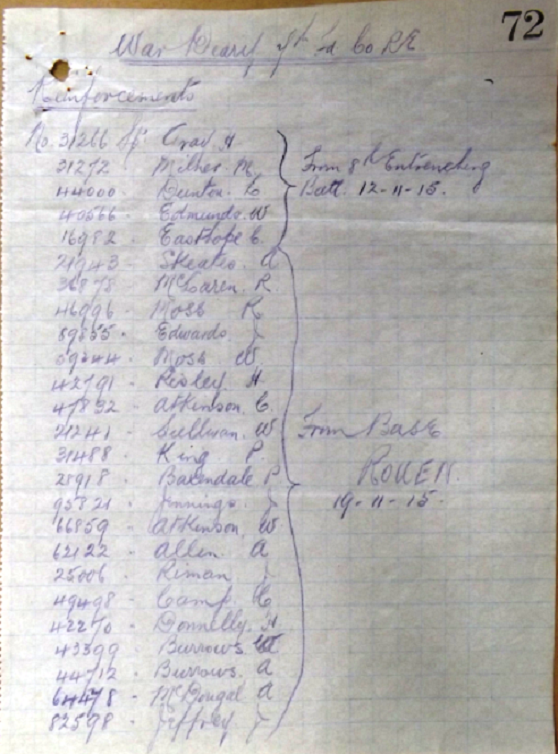 72
War Diary 7th Fd Co RE
Reinforcements
No. 31266 Gray H
31272 Milner M.
44000 Denton. C
40566 Edmunds. W
16982 Easthope C.
21943 - Skeates. A
36878 McLaren. R
46996 Moss R
59655 - Edwards J
59644 Moss W
42791 - Risley H
47832 - Atkinson. C.
21241 - Sullivan. W
31488 King P
28918 Baxendale P
95821 - Jennings. J
66859 - Atkinson. W
62122 - Allen. A
25006 - Kiman J
49498 - Camp. C
42270 - Donnelly. H
43399 - Burrows W
44712 - Burrows. A
64478 - McDougal A
82598 - Jeffrey J
From 8th Entrenching
Batt. 12-11-15.
From Base
ROUEN.
19-11-15.